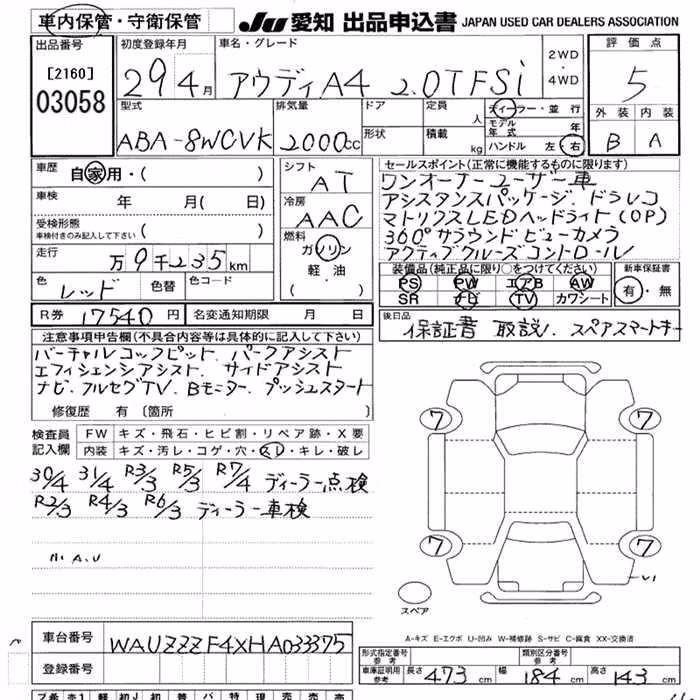 車内保管・守衛保管 JU 愛知 出品申込書 JAPAN USED CAR DEALERS ASSOCIATION
出品番号 初度登録年月 車名・グレード 2WD・4WD 評価点
[2160]
03058 29 4月 アウディA4 2.0TFSi 5
型式 排気量 ドア 定員 人 ディーラー・並行 外装 内装
モデル年式 年
ABA-8WCVK 2000cc 形状 積載 kg ハンドル 左 右 B A
車歴 自家用・( ) シフト AT セールスポイント(正常に機能するものに限ります)
車検 年 月( 日) 冷房 AAC ワンオーナーユーザー車
アシスタンスパッケージ、ドラレコ
受検形態 ( ) マトリクスLEDヘッドライト(OP)
車検付きのみ記入して下さい
360°サラウンドビューカメラ
走行 万9千235km 燃料 ガソリン・軽油・( ) アクティブクルーズコントロール
装備品(純正品に限り○をつけてください) 新車保証書
色 レッド 色替 色コード PS PW エアB AW 有・無
SR ナビ TV カワシート
R券 17540円 名変通知期限 月 日 後日品 保証書 取説、スペアスマートキー
注意事項申告欄(不具合内容等は具体的に記入して下さい)
バーチャルコックピット、パークアシスト
エフィシェンシアシスト、サイドアシスト
ナビ、フルセグTV、Bモニター、プッシュスタート
修復歴 有 (箇所 )
検査員記入欄 FW キズ・飛石・ヒビ割・リペア跡・X要
内装 キズ・汚レ・コゲ・穴・スレ・キレ・破レ
7 7
30/4 31/4 R3/3 R5/3 R7/4 ディーラー点検
R2/3 R4/3 R6/3 ディーラー車検
7 7
スペア
A-キズ E-エクボ U-凹み W-補修跡 S-サビ C-腐食 XX-交換済
車台番号 WAUZZZF4XHA033375
登録番号 型式指定番号 参考 類別区分番号 参考
車庫証明用 参考 長さ 473cm 幅 184cm 高さ 143cm